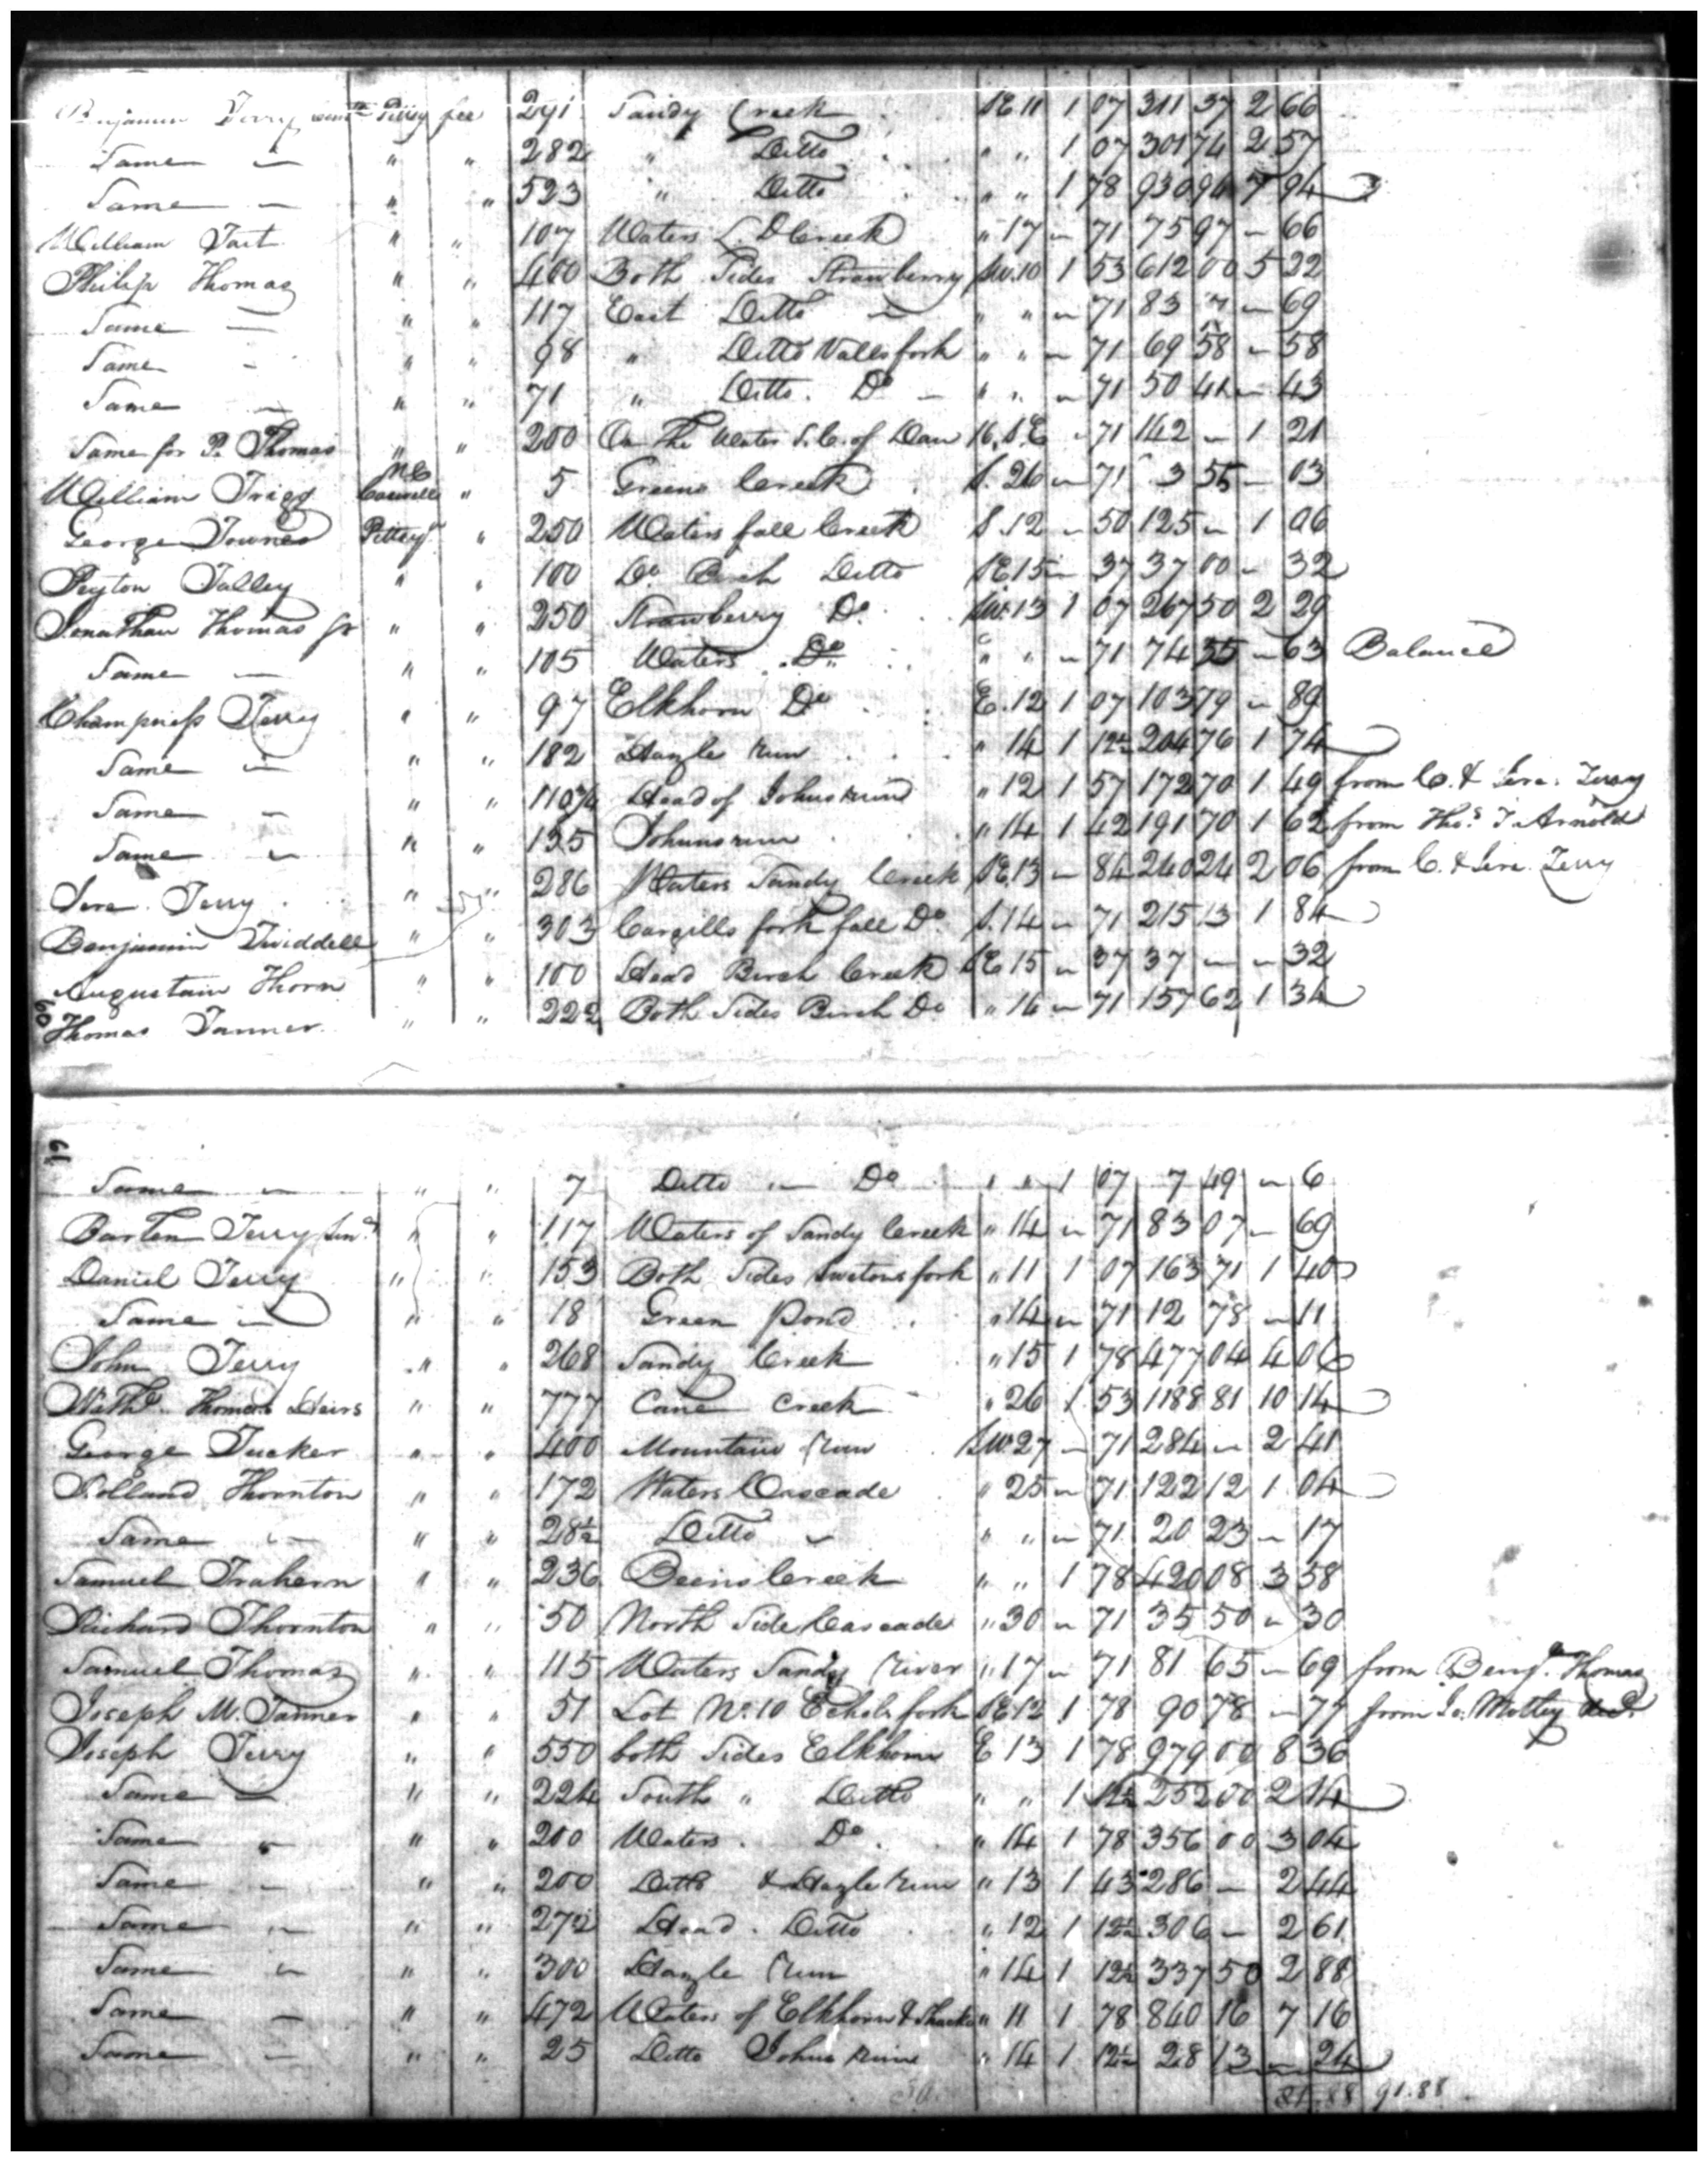 Benjamin Terry Pittsy fee 291 Sandy Creek SE 11 1 07 311 37 2 66
Same " " 282 " Ditto " " 1 07 301 74 2 57
Same " " 523 " Ditto " " 1 78 930 94 7 94
William Tait " " 107 Waters S. D Creek " 17 71 75 97 66
Philip Thomas " " 400 Both Sides Strawberry SW. 10 1 53 612 00 5 22
Same " " 117 East Ditto " " 71 83 7 69
Same " " 98 " Ditto Valls fork " " 71 69 58 58
Same " " 71 " Ditto Do " " 71 50 41 43
Same for P. Thomas " " 200 On the Water S. C. of Dan 16. S.E 71 142 1 21
William Trigg N.C Caswell " 5 Greens Creek S. 26 71 3 55 03
George Townes Pittsy " 250 Waters fall Creek S. 12 50 125 1 06
Peyton Talley " " 100 Do Birch Ditto SE 15 37 37 00 32
Jonathan Thomas Jr " " 250 Strawberry Do SW. 13 1 07 267 50 2 29
Same " " 105 Waters Do " " 71 74 55 63 Balance
Champness Terry " " 97 Elkhorn Do E. 12 1 07 103 79 89
Same " " 182 Hazle Run " 14 1 12½ 204 76 1 74
Same " " 110 Head of Johns run " 12 1 57 172 70 1 49 from C. & Terry
Same " " 135 Johns run " 14 1 42 191 70 1 62 from Thos. T Arnold
Terry " " 286 Waters Sandy Creek SE. 13 84 240 24 2 06 from C. & Terry
Benjamin Twiddell " " 303 Cargills fork fall Do S. 14 71 215 13 1 84
Augustain Thorn " " 100 Head Birch Creek SE 15 37 37 32
Thomas Tanner " " 222 Both Sides Birch Do " 16 71 157 62 1 34
60
61
Same " " 7 Ditto Do " " 1 07 7 49 6
Barten Terry Sen " " 117 Waters of Sandy Creek " 14 71 83 07 69
Daniel Terry " " 153 Both Sides fork " 11 1 07 163 71 1 40
Same " " 18 Green Pond " 14 71 12 78 11
John Terry " " 268 Sandy Creek " 15 1 78 477 04 4 06
Thomas Heirs " " 777 Cane Creek " 26 1 53 1188 81 10 14
George Tucker " " 400 Mountain Run SW 27 71 284 2 41
Rolland Thornton " " 172 Waters Cascade " 25 71 122 12 1 04
Same " " 28½ Ditto " " 71 20 23 17
Samuel Trahern " " 236 Beens Creek " " 1 78 420 08 3 58
Richard Thornton " " 50 North Side Cascade " 30 71 35 50 30
Samuel Thomas " " 115 Waters Sandy River " 17 71 81 65 69 from Benj. Thomas
Joseph M. Tanner " " 51 Lot No. 10 Echols fork SE. 12 1 78 90 78 77 from Jo. Motley Decd.
Joseph Terry " " 550 both Sides Elkhorn E 13 1 78 979 00 8 36
Same " " 224 South " Ditto " " 1 12½ 252 00 2 14
Same " " 200 Waters Do " 14 1 78 356 00 3 04
Same " " 200 Ditto & Hazle Run " 13 1 43 286 2 44
Same " " 272 Head Ditto " 12 1 12½ 306 2 61
Same " " 300 Hazle Run " 14 1 12½ 337 50 2 88
Same " " 472 Waters of Elkhorn & " 11 1 78 840 16 7 16
Same " " 25 Ditto Johns run " 14 1 12½ 28 13 24
91.88